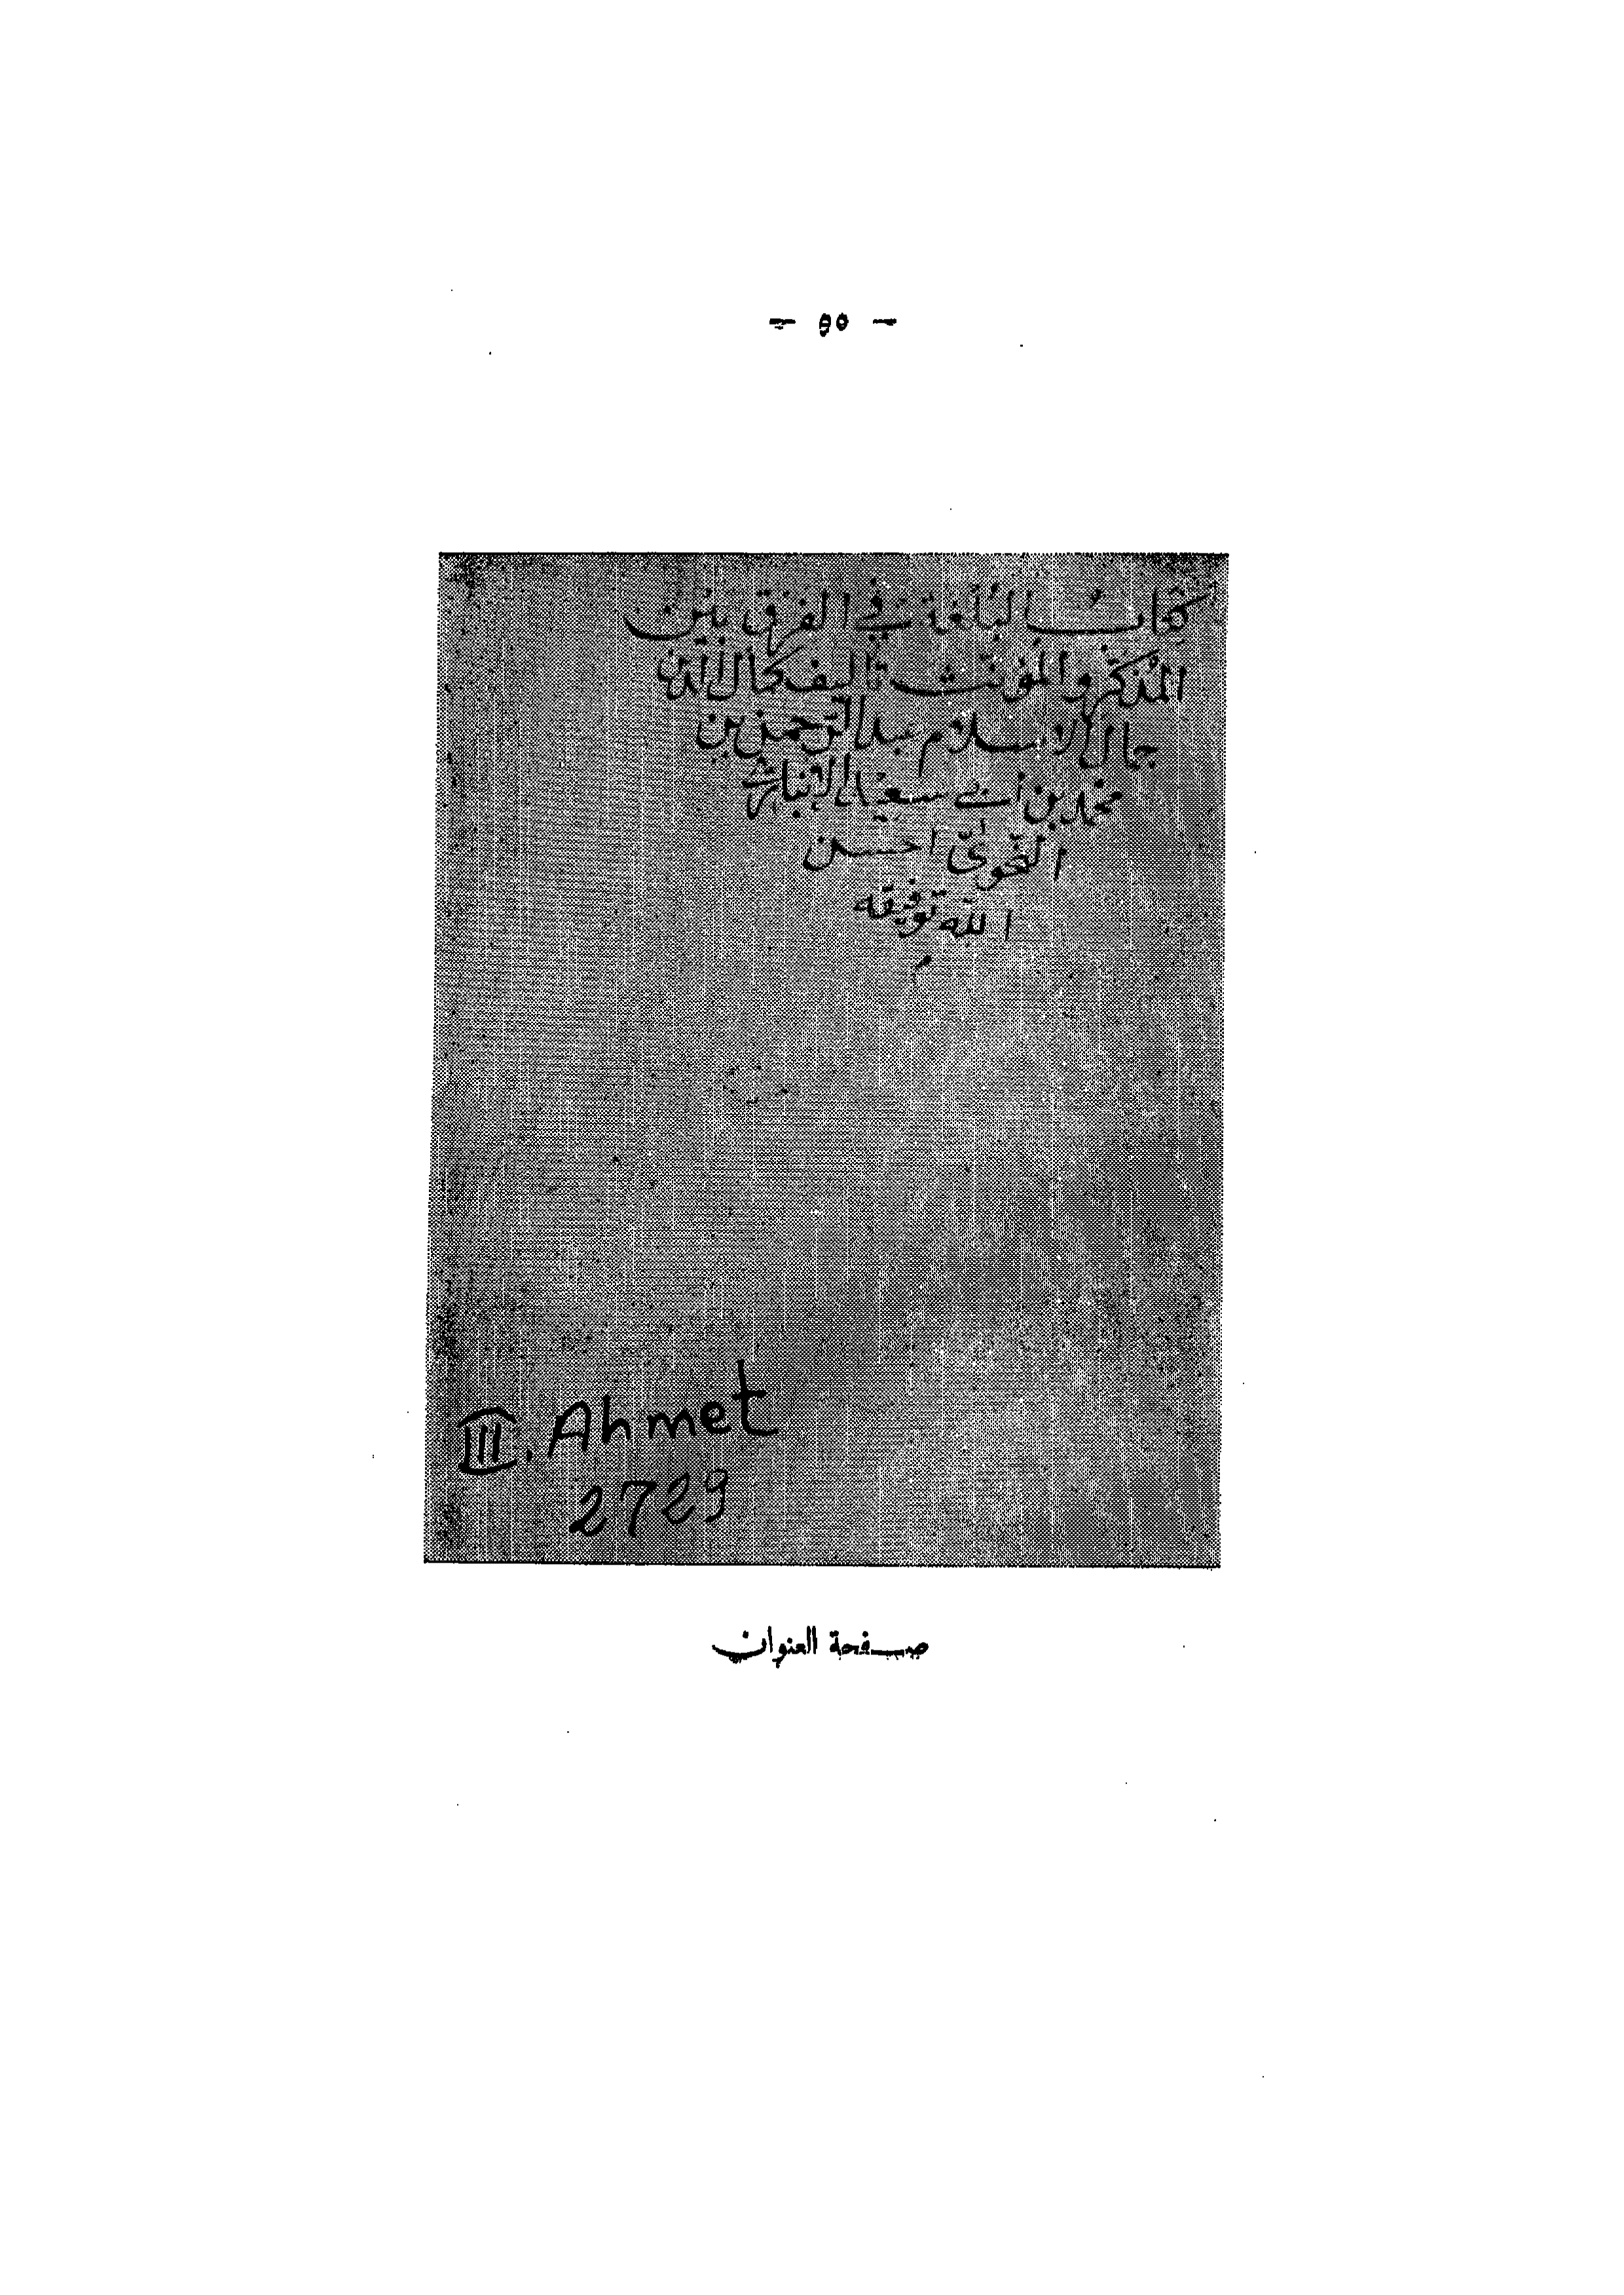 - ٥٥ -
كتابُ البُلغة في الفرق بين
المذكّر والمؤنّث تأليف كمال الدين
جمال الاسلام عبد الرّحمن بن
محمد بن أبي سعيد الانباري
النحويّ أحسن
الله توفيقه
III. Ahmet
2729
صفحة العنوان